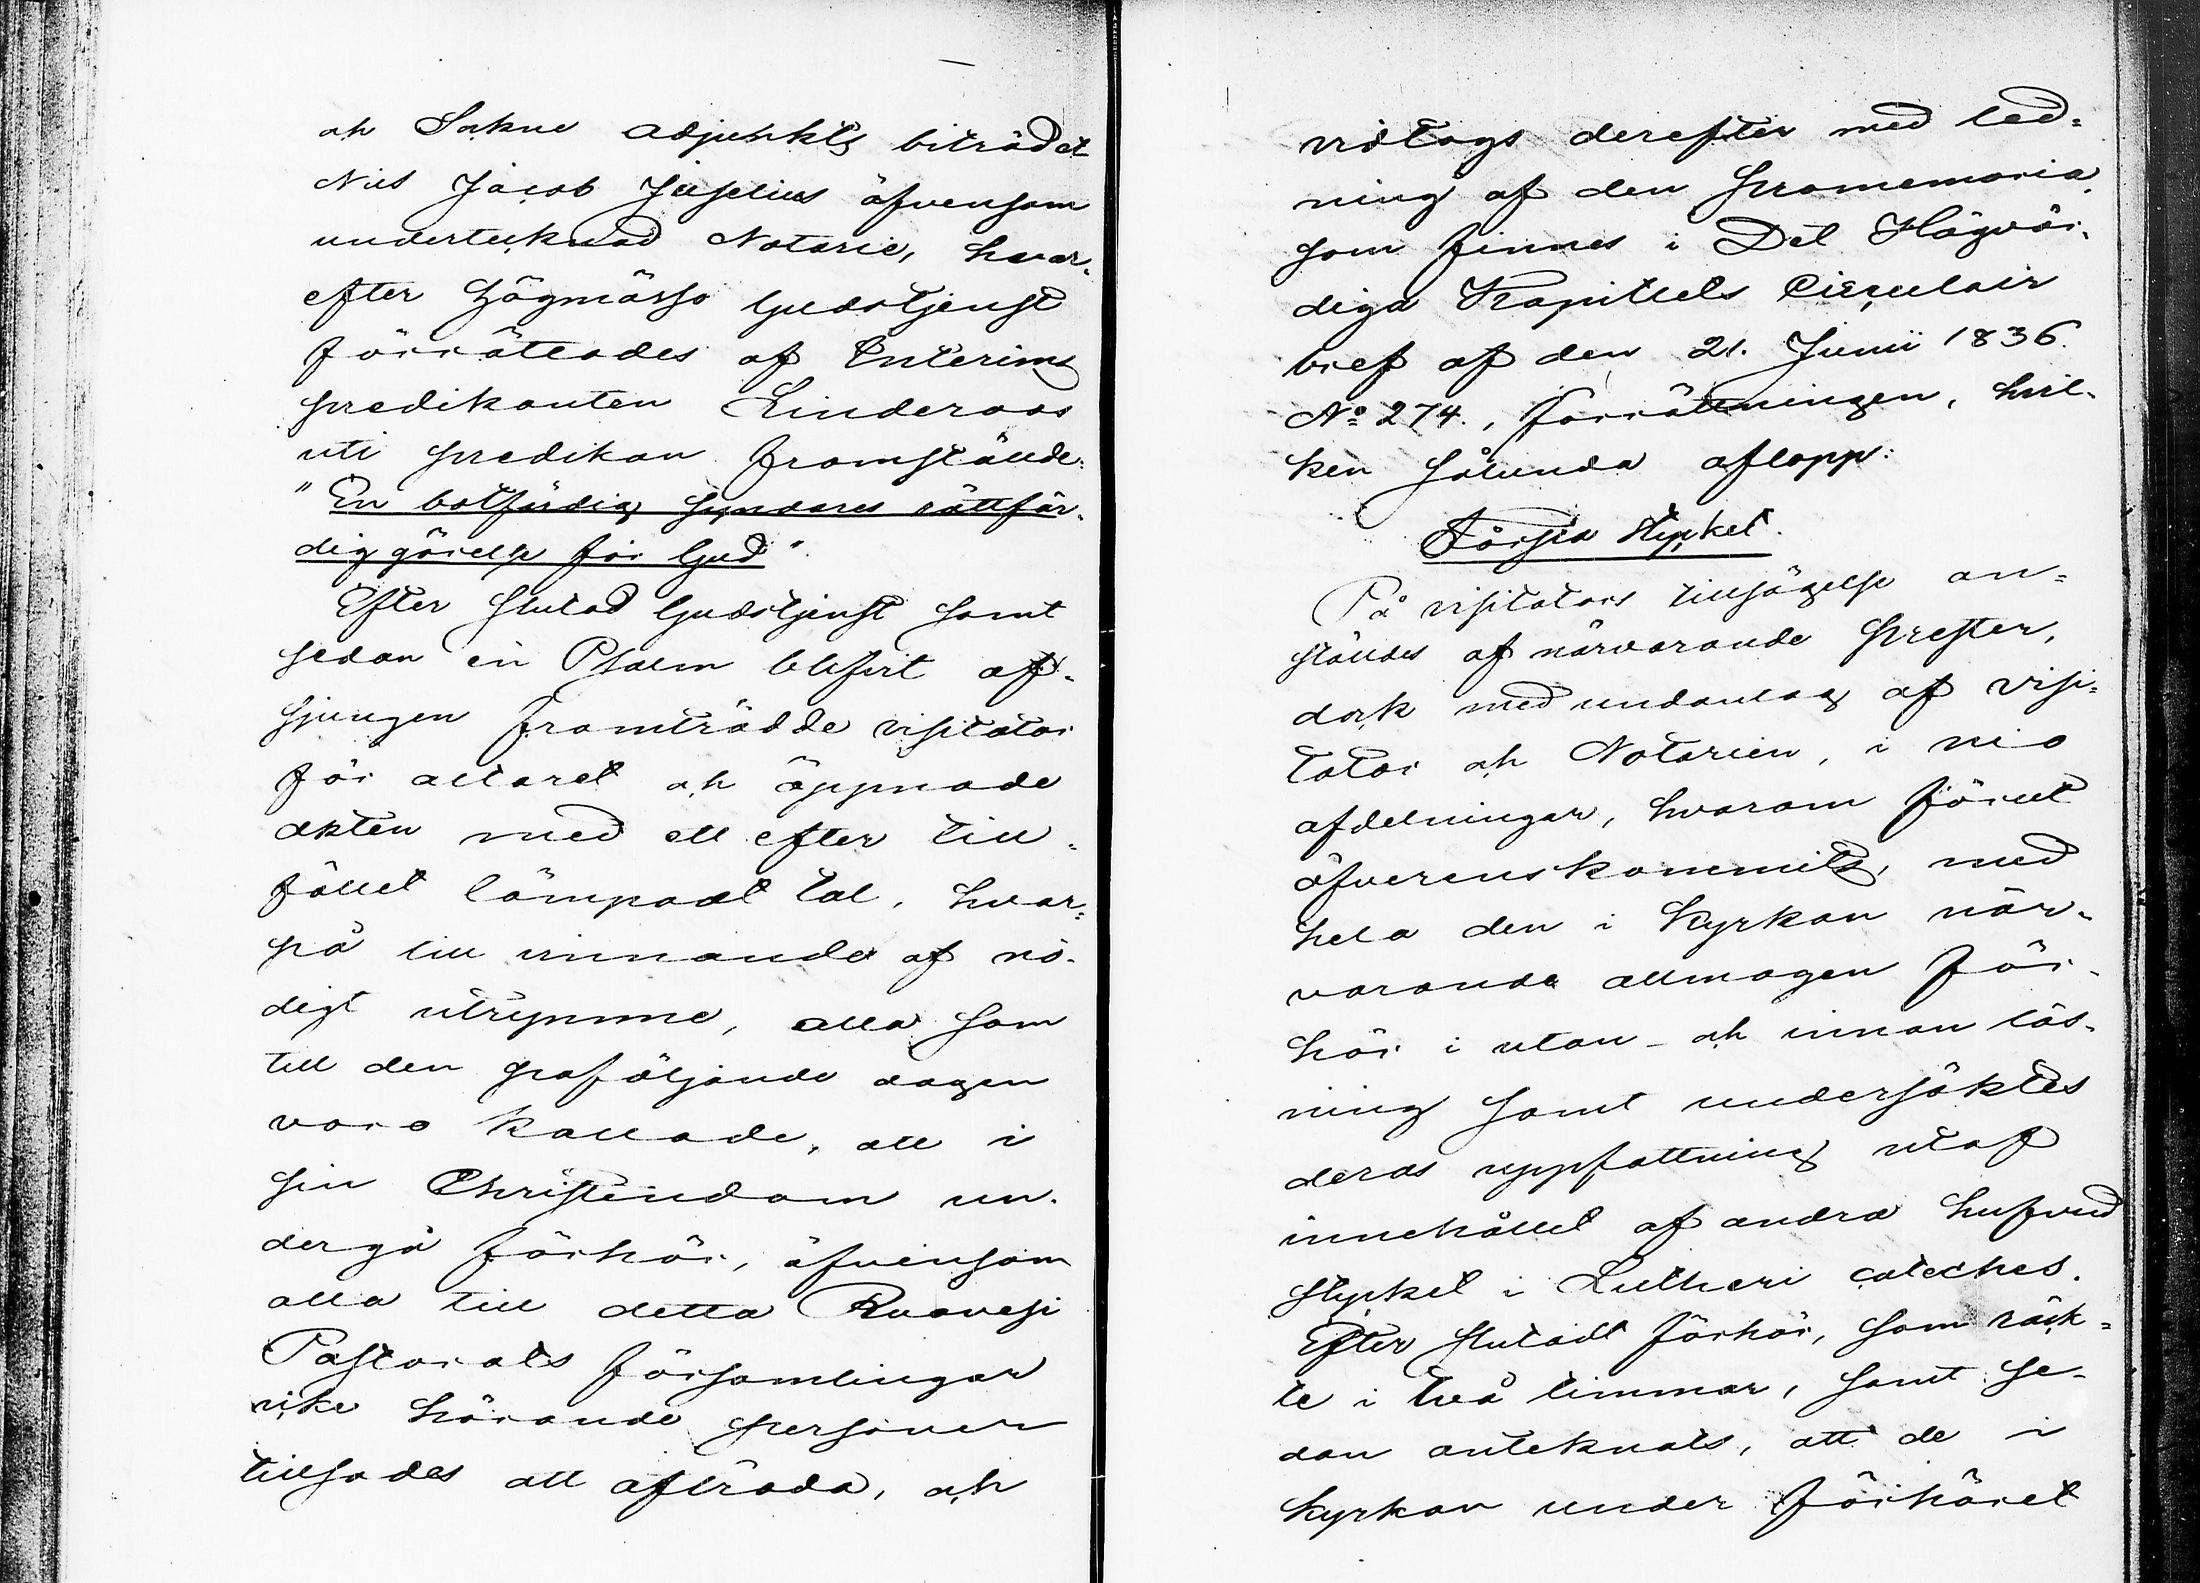 och Sokne adjunkts biträdet
Nils Jacob Juselius äfvensom
undertecknad Notarie, hvar-
efter högmässo gudstjenst
förrättades af Interims
predikanten Linderoos
uti predikan framställde:
"En botfärdig syndares rättfär-
dig görelse för Gud".
Efter slutad gudstjenst samt
sedan en Psalm blifvit af-
sjungen framträdde visitator
för altaret och öppnade
akten med ett efter till-
fället lämpadt tal, hvar-
på till vinnande af nö-
digt utrymme, alla som
till den påföljande dagen
voro kallade, att i
sin Christendom un-
dergå förhör, äfvensom
alla till detta Ruovesi
Pastorats församlingar
icke hörande personer
tillsades att afträda, och
vidtogs derefter med led-
ning af den promemoria
som finnes i Det Högvör-
diga Kapitlets Circulair
bref af den 21. Junii 1836.
No 274., förrättningen, hvil-
ken sålunda aflopp:
Första stycket.
På visitators tillsägelse an-
ställdes af närvarande Prester,
dock med undantag af visi-
tator och Notarien, i nio
afdelningar, hvarom förut
öfverenskommits, med
hela den i Kyrkan när-
varande allmogen för-
hör i utan- och innan läs-
ning samt undersöktes
deras uppfattning utaf
innehållet af andra hufvud
stycket i Lutheri cateches.
Efter slutadt förhör, som räck-
te i två timmar, samt se-
dan antecknats, att de i
kyrkan under förhöret